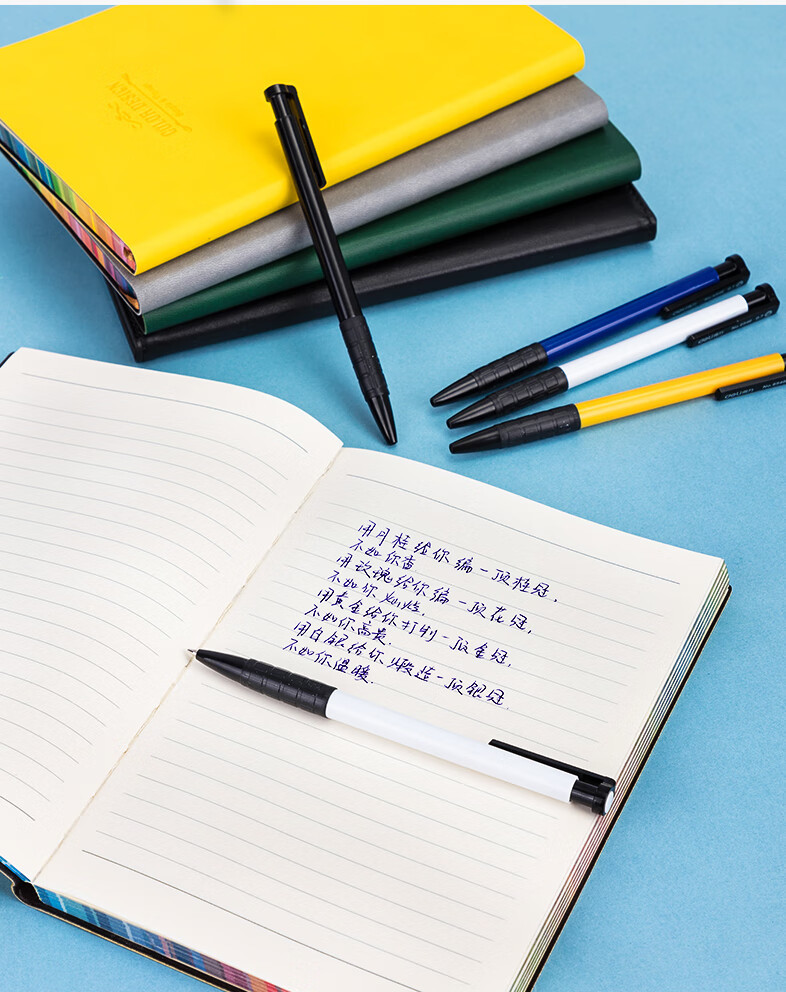 COLOR DESIGN
用月桂给你编一顶桂冠,
不如你香
用玫瑰给你编一顶花冠,
不如你灿烂.
用黄金给你打制一顶金冠,
不如你高贵.
用白银给你煅造一顶银冠
不如你温暖.